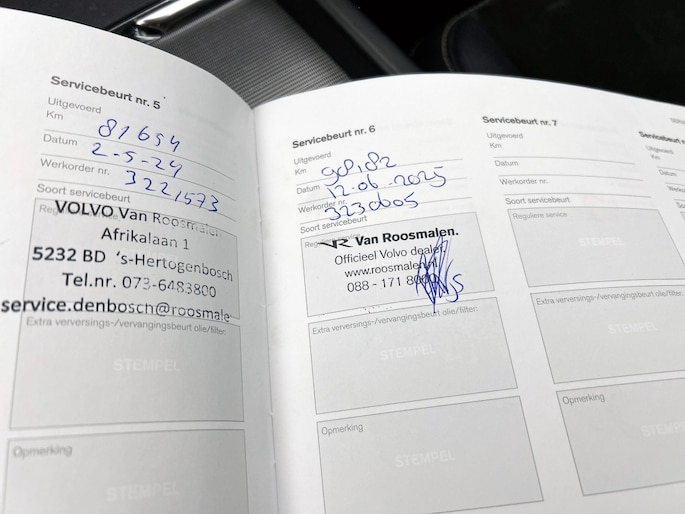 Servicebeurt nr. 5
Uitgevoerd
Km 81654
Datum 2-5-24
Werkorder nr. 3221573
Soort servicebeurt
VOLVO Van Roosmalen
Afrikalaan 1
5232 BD 's-Hertogenbosch
Tel.nr. 073-6483800
service.denbosch@roosmale
Extra verversings-/vervangingsbeurt olie/filter:
STEMPEL
Opmerking
STEMPEL
Servicebeurt nr. 6
Uitgevoerd
Km 98182
Datum 12.06.2025
Werkorder nr.
Soort servicebeurt
VR Van Roosmalen.
Officieel Volvo dealer
www.roosmalen.nl
088 - 171 8000
Extra verversings-/vervangingsbeurt olie/filter:
STEMPEL
Opmerking
STEMPEL
Servicebeurt nr. 7
Uitgevoerd
Km
Datum
Werkorder nr.
Soort servicebeurt
Reguliere service
STEMPEL
Extra verversings-/vervangingsbeurt olie/filter:
STEMPEL
Opmerking
STEMPEL